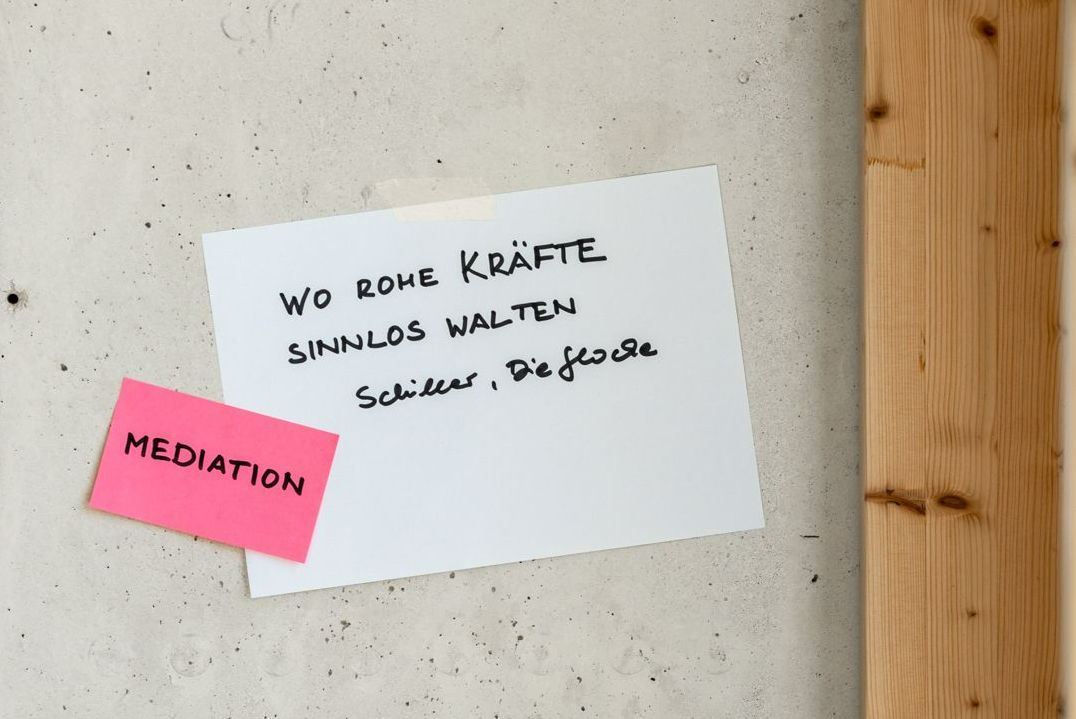 WO ROHE KRÄFTE
SINNLOS WALTEN
Schiller, Die Glocke
MEDIATION